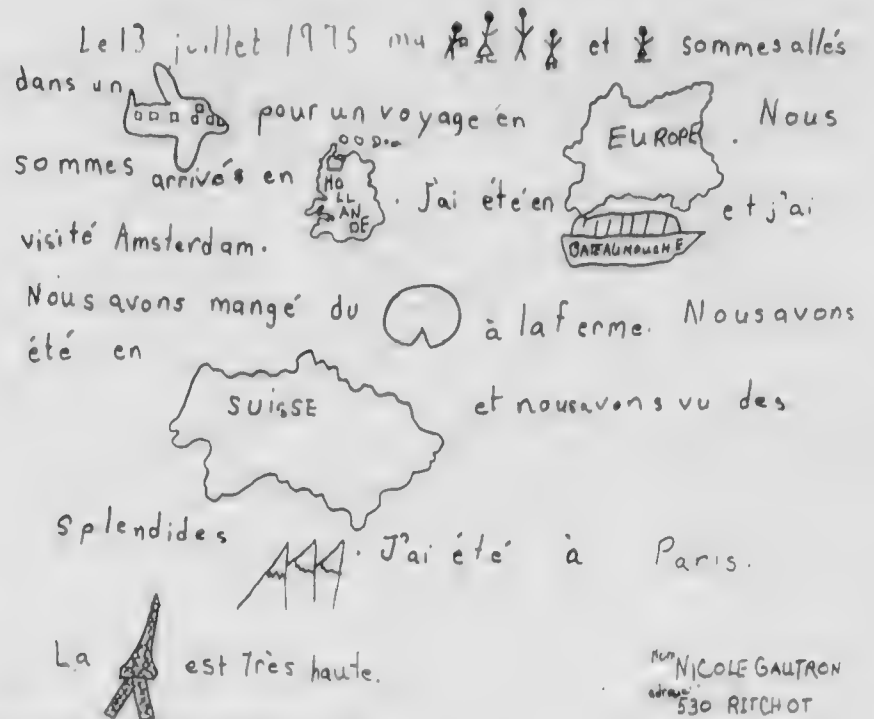 Le 13 juillet 1975 ma et sommes allés
dans un pour un voyage en EUROPE. Nous
sommes arrivés en HOLLANDE. J'ai été en BATEAU MOUCHE et j'ai
visité Amsterdam.
Nous avons mangé du à la ferme. Nous avons
été en
SUiSSE et nous avons vu des
splendides . J'ai été à Paris.
La est Très haute.
Nom NICOLE GAUTRON
adresse 530 RITCHOT